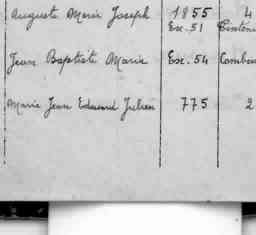 Auguste Marie Joseph 1855 4
Exc. 51
Jean Baptiste Marie Exc. 54
Marie Jean Edouard Julien 775 2